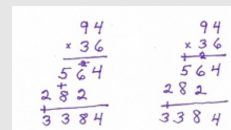 94
× 36
2
564
+
282
+
3384
94
× 36
+ 2
564
282
3384